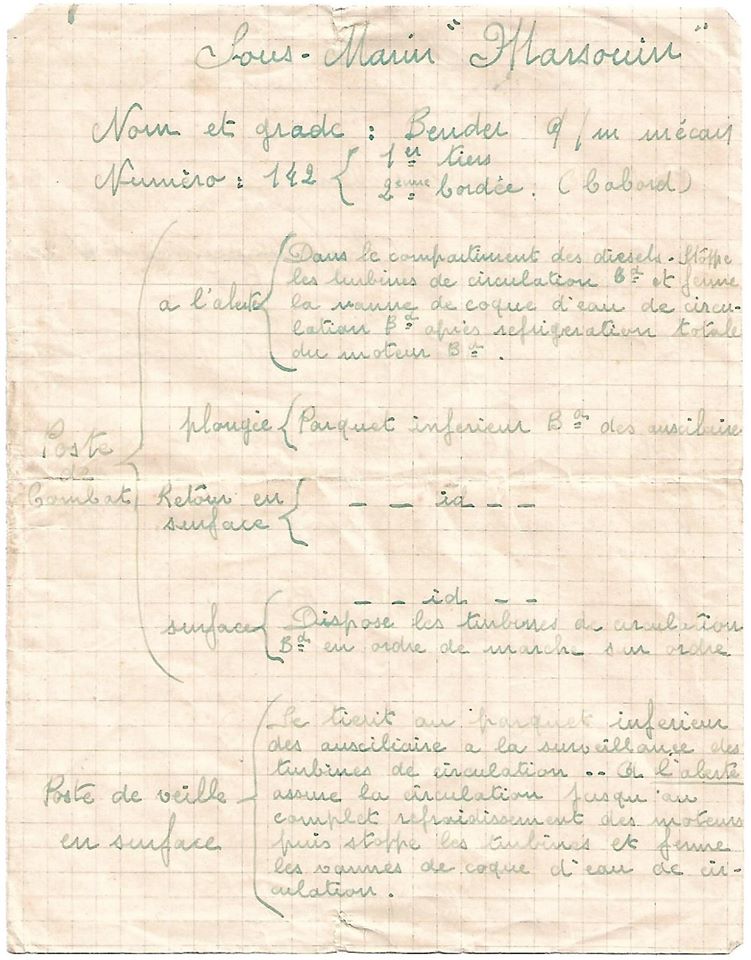 Sous-Marin "Marsouin"
Nom et grade : Bender q/m mécan
Numéro : 142 { 1er tiers
2ème bordée. (babord)
Poste de Combat
a l'alerte { Dans le compartiment des diesels - Stoppe
les turbines de circulation Bd et ferme
la vanne de coque d'eau de circu-
lation Bd après refrigeration totale
du moteur Bd.
plongée { Parquet inferieur Bd des auxilaire
Retour en surface { _ _ id _ _
surface { _ _ id _ _
Dispose les turbines de circulation
Bd en ordre de marche sur ordre
Poste de veille
en surface
Se tient au parquet inferieur
des auxiliaire a la surveillance des
turbines de circulation .. A l'alerte
assure la circulation jusqu'au
complet refraidissement des moteurs
puis stoppe les turbines et ferme
les vannes de coque d'eau de cir-
culation.